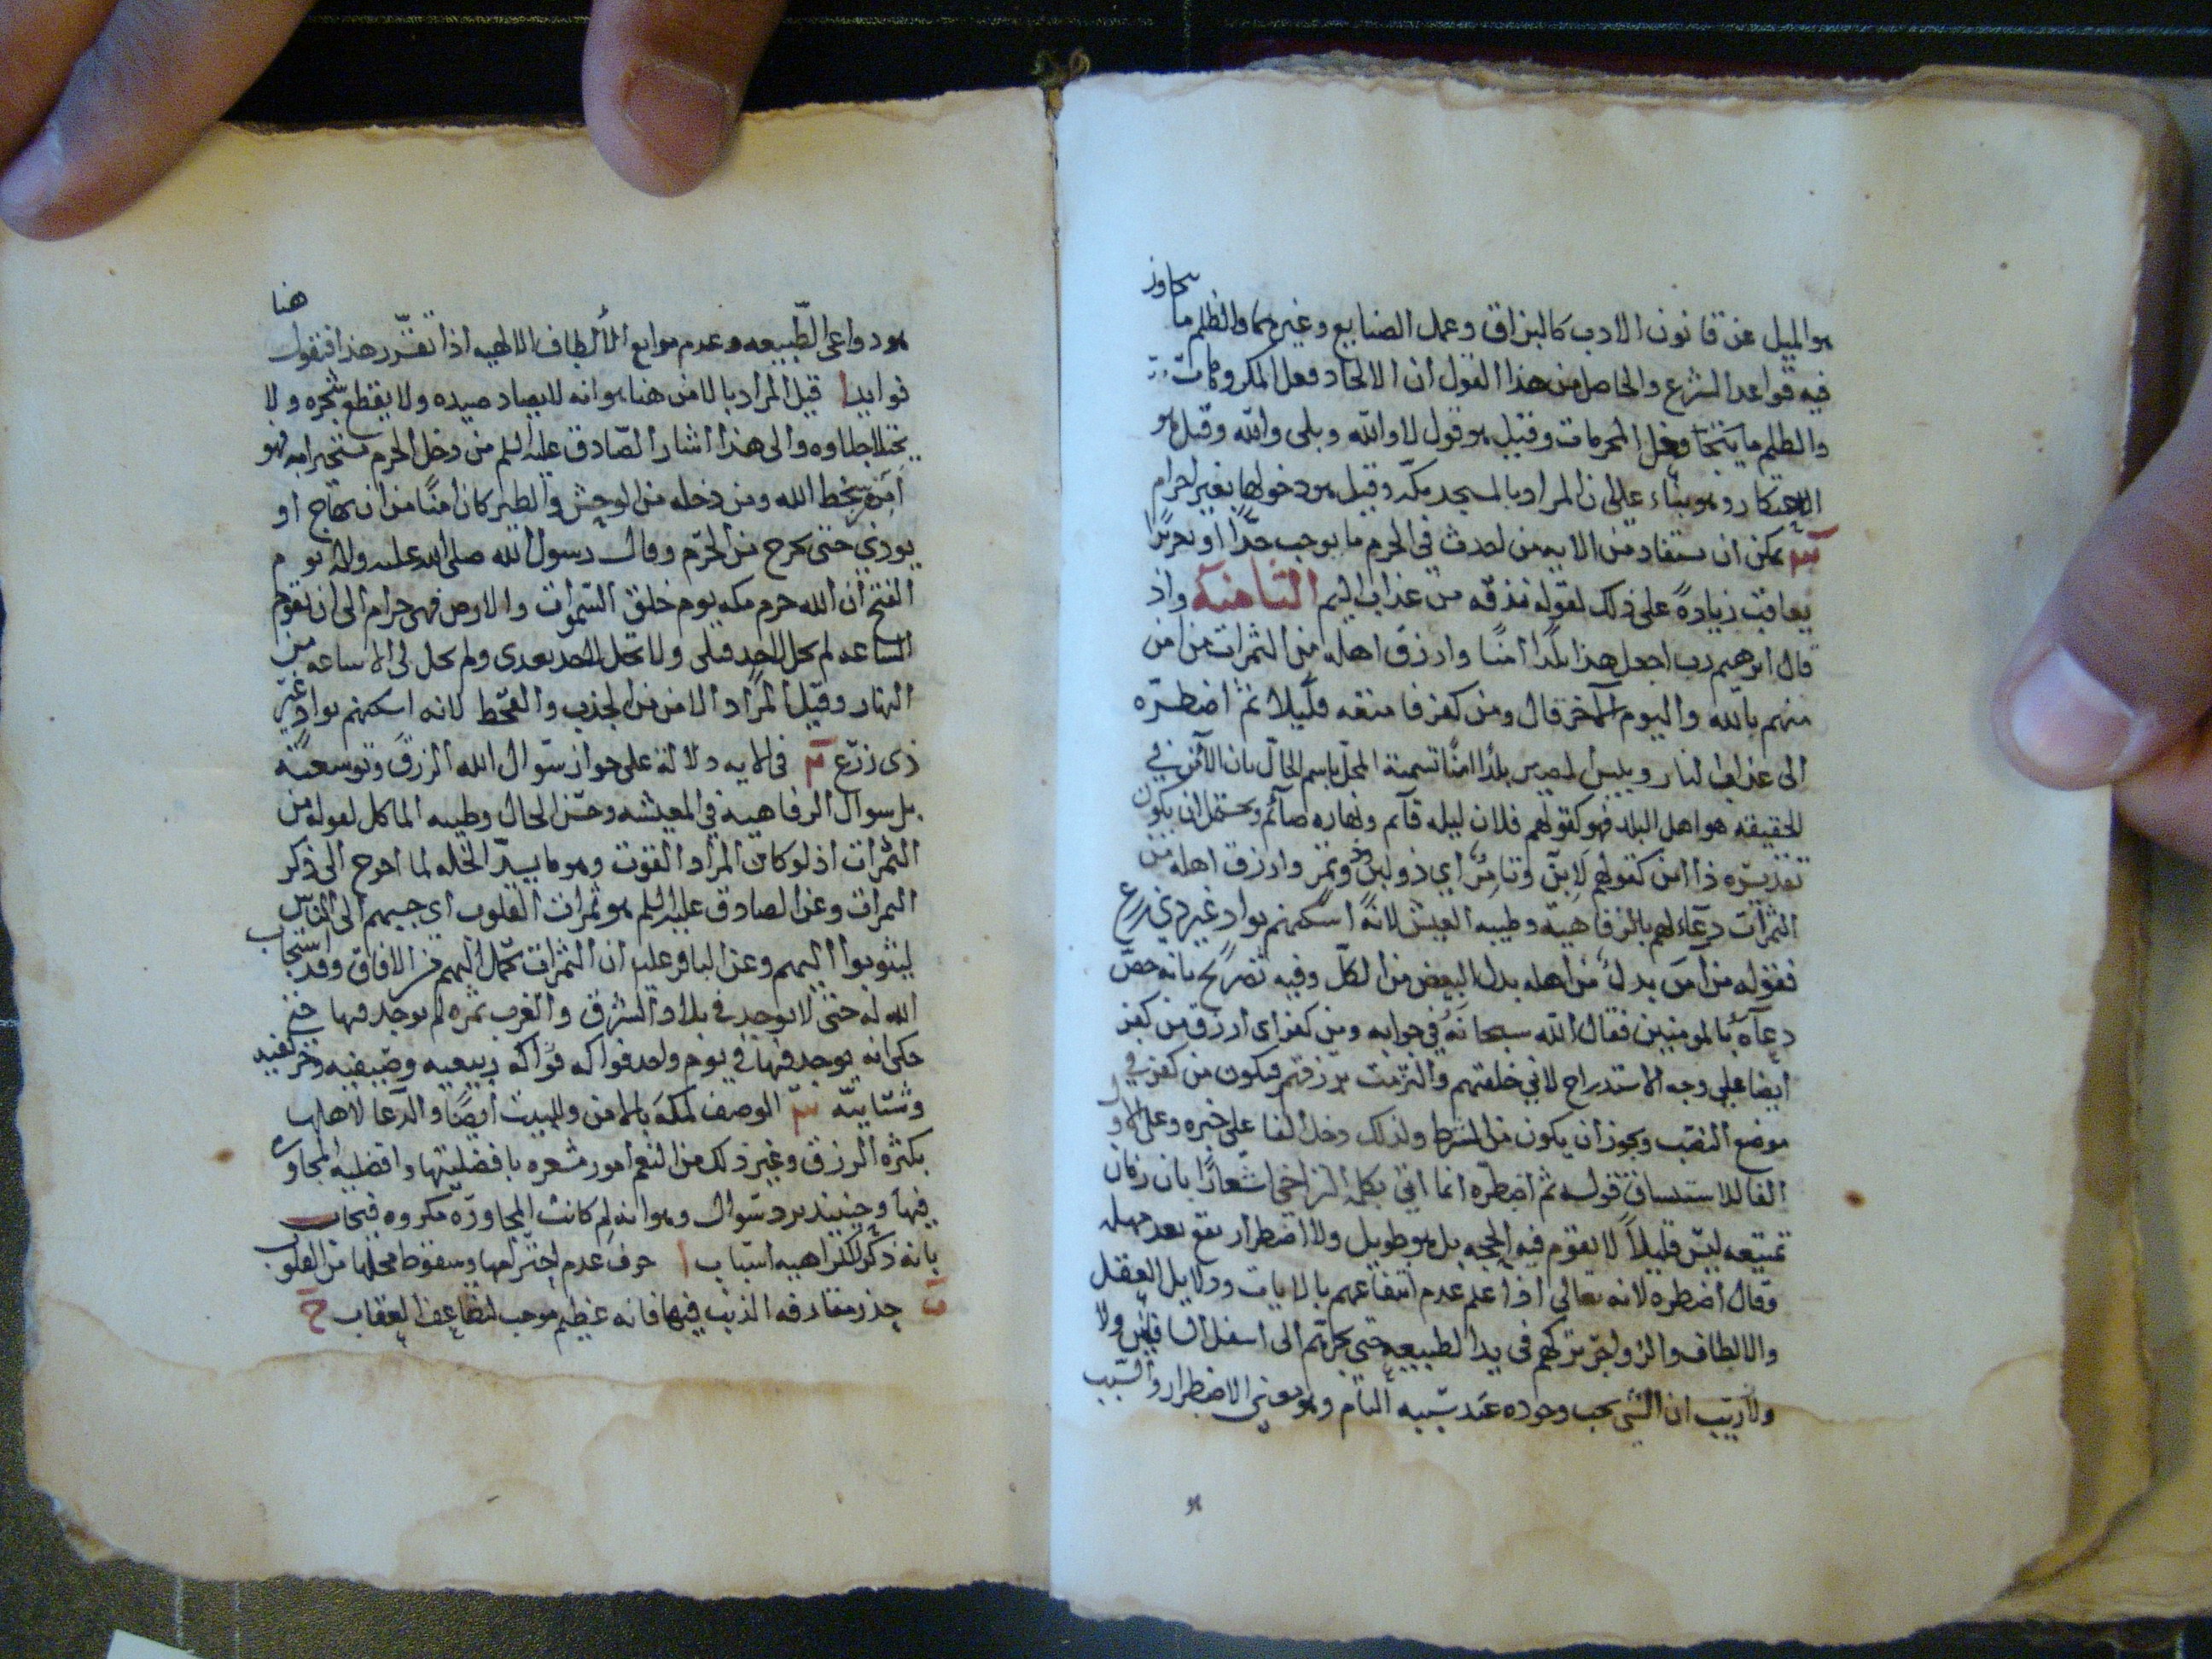 هو الميل عن قانون الادب كالبزاق وعمل الصنايع وغيرهما والظلم ما يتجاوز
فيه قواعد الشرع والحاصل من هذا القول ان الالحاد فعل المكروهات
والظلم ما يتجاوز فعل المحرمات وقيل هو قول لا والله وبلى والله وقيل هو
الاحتكار وهو بناء على ان المراد بالمسجد مكة وقيل هو دخولها بغير احرام
يمكن ان يستفاد من الايه من احدث في الحرم ما يوجب حدًّا او تعزيرًا
يعاقب زيادةً على ذلك لقوله نذقه من عذاب اليم الثامنة واذ
قال ابرهيم رب اجعل هذا بلدًا امنًا وارزق اهله من الثمرات من امن
منهم بالله واليوم الآخر قال ومن كفر فامتعه قليلا ثم اضطرّه
الى عذاب النار وبئس المصير بلدا امنًا تسمية المحلّ باسم الحالّ بان الآمن في
الحقيقه هو اهل البلد فهو كقولهم فلان ليله قآئم ونهاره صآئم ويحتمل ان يكون
تقديره ذا امن كقولهم لابن وتامر اي ذو لبن وتمر وارزق اهله من
الثمرات دعآء لهم بالرفاهية وطيبه العيش لانه اسكنهم بواد غير ذي زرع
فقوله من آمن بدل من اهله بدل البعض من الكلّ وفيه تصريح بانه خصّ
دعآه بالمومنين فقال الله سبحانه في جوابه ومن كفر اى ارزق من كفر
ايضا على وجه الاستدراج لاني خلقتهم والتزمت برزقهم فيكون من كفر في
موضع النصب ويجوز ان يكون من الشرط ولذلك دخل الفا على خبره وعلى الاول
الفا للاستيناف قوله ثم اضطرّه انما اتى بكلمة التراخي اشعارًا بان زمان
تمتيعه ليس قليلاً لا يقوم فيه الحجه بل هو طويل ولا اضطرار يقع بعد مهلة
وقال اضطره لانه تعالى اذا علم عدم انتفاعهم بالايات ودلايل العقل
والالطاف والزواجر تركهم في يد الطبيعه حتى تجرّهم الى اسفل السافلين ولا
ولا ريب ان الشي يجب وجوده عند سببه التام وهو معنى الاضطرار والسبب
هو دواعي الطبيعه وعدم موانع الألطاف الالهيه اذا تقرّر هذا فنقول هنا
فوايد ا قيل المراد بالامن هنا هو انه لا يصاد صيده ولا يقطع شجره ولا
يختلا خلاوه والى هذا اشار الصّادق عليه السلم من دخل الحرم مستجيرا به فهو
آمن من سخط الله ومن دخله من الوحش والطير كان امنًا من ان يهاج او
يوذي حتى يخرج من الحرم وقال رسول الله صلى الله عليه واله يوم
الفتح ان الله حرم مكه يوم خلق السموات والارض فهى حرام الى ان تقوم
الساعه لم تحل لاحد قبلى ولا تحل لاحد بعدى ولم تحل لى الا ساعه من
النهار وقيل المراد الامن من الجذب والقحط لانه اسكنهم بواد غير
ذى زرع ب في الايه دلالة على جواز سوال الله الرزق وتوسعته
بل سوال الرفاهية في المعيشه وحسن الحال وطيبه الماكل لقوله من
الثمرات اذ لو كان المراد القوت وهو ما يسدّ الخله لما احوج الى ذكر
الثمرات وعن الصادق عليه السلم هو ثمرات القلوب اي حببهم الى الناس
ليثوبوا اليهم وعن الباقر عليه ان الثمرات تحمل اليهم من الافاق وقد استجاب
الله له حتى لا يوجد في بلاد الشرق والغرب ثمره لم يوجد فيها حتى
حكى انه يوجد فيها في يوم واحد فواكه ربيعيه وصيفيه وخريفيه
وشتاييّه الوصف لمكة بالامن وللبيت ايضًا والدّعا لاهلها
بكثره الرزق وغير ذلك من النعم امور مشعره بافضليتها وافضليه المجاوره
فيها وحينئذ يرد سوال وهو انه لم كانت المجاورة مكروه فيجاب
بانه ذكر للكراهيه اسباب ا خوف عدم احترامها وسقوط محلها من القلوب
ب حذر مقارفه الذنب فيها فانه عظيم موجب لتضاعف العقاب ج